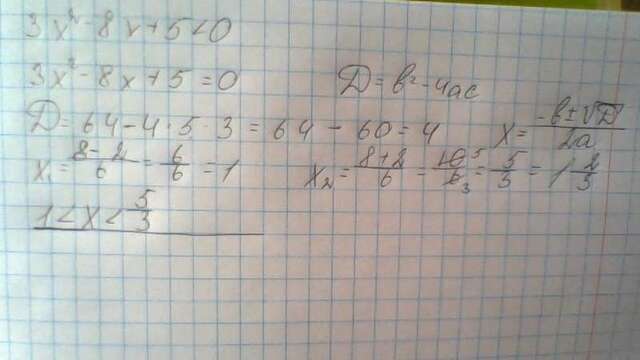 3x² - 8x + 5 < 0
3x² - 8x + 5 = 0
D = b² - 4ac
D = 64 - 4 · 5 · 3 = 64 - 60 = 4
x = (-b ± √D)/2a
x₁ = (8 - 2)/6 = 6/6 = 1
x₂ = (8 + 2)/6 = 10 5/6 3 = 5/3 = 1 2/3
1 < x < 5/3